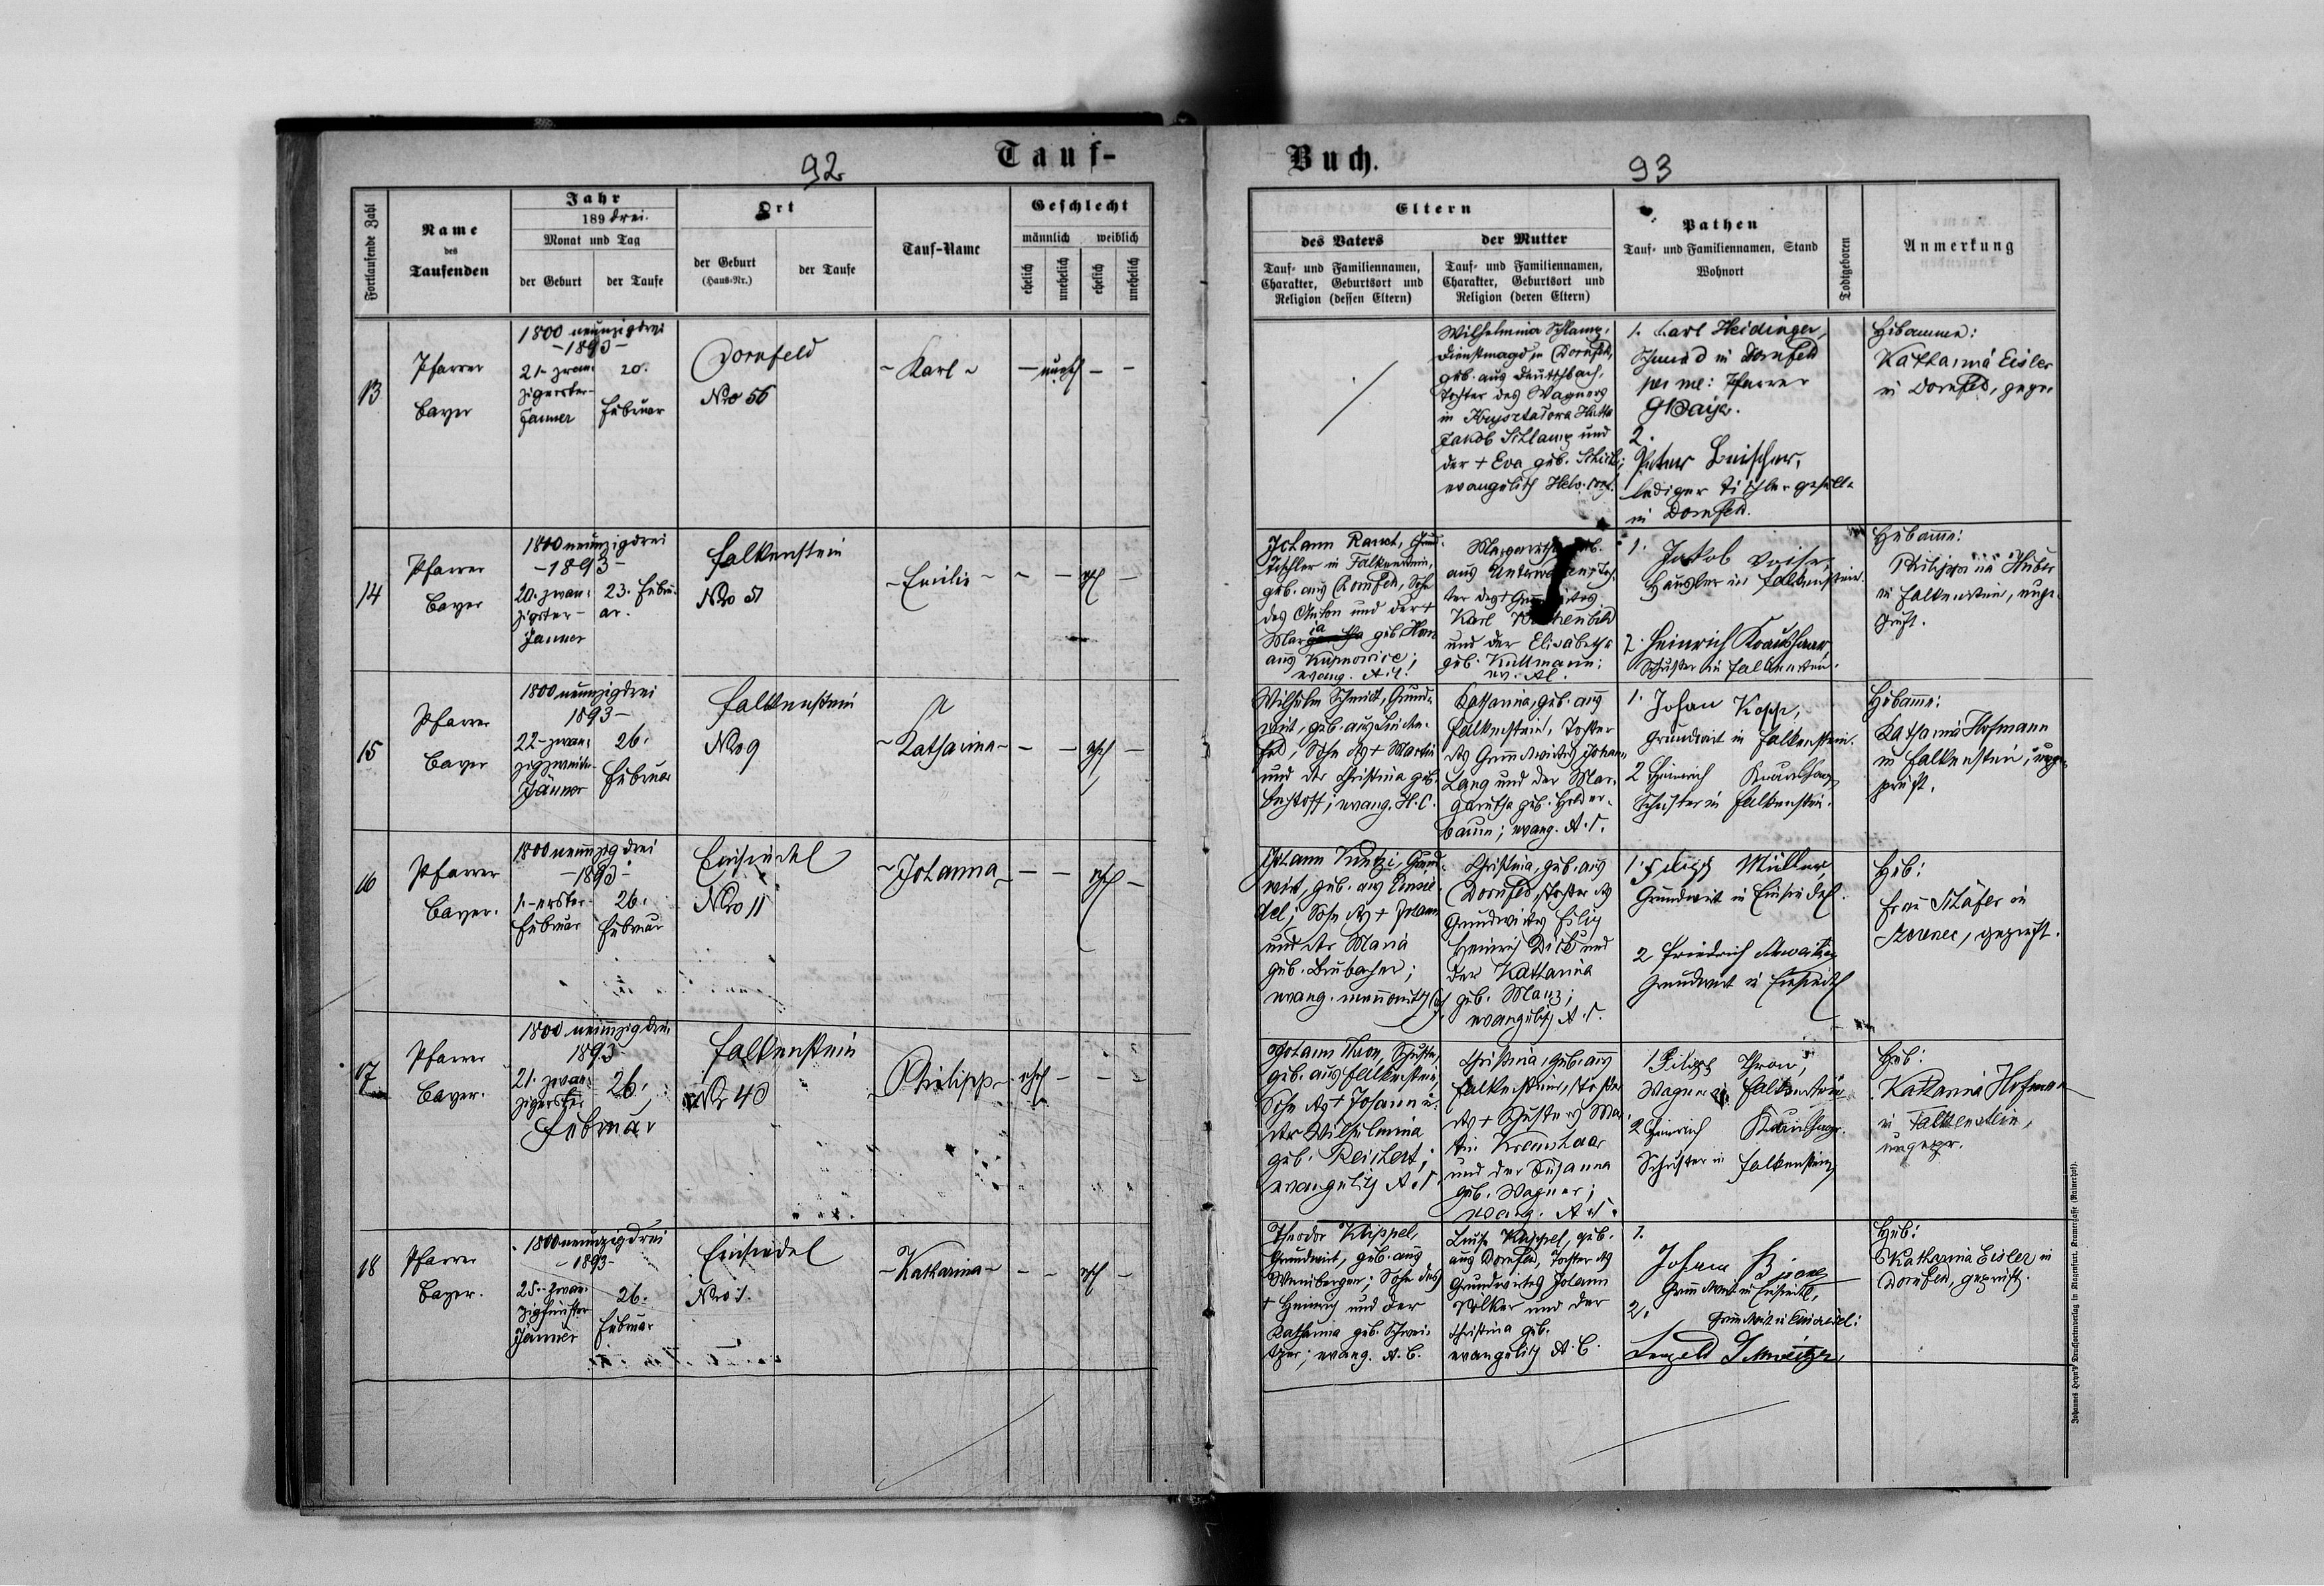 92
Tauf-
Fortlaufende Zahl
Name
des
Taufenden
Jahr
189 drei.
Monat und Tag
der Geburt
der Taufe
Ort
der Geburt
(Haus-Nr.)
der Taufe
Tauf-Name
Geschlecht
männlich weiblich
ehelich
unehelich
ehelich
unehelich
13
Pfarrer
Bayer
1800 neunzigdrei
-1893-
21- zwan-
zigerster-
Janner
20.
Februar
Dornfeld
Nro 56
~ Karl ~
- unehl - -
14
Pfarrer
Bayer
1800 neunzigdrei
-1893-
20. zwan-
zigster-
Janner
23. Febru-
ar.
Falkenstein
Nro 51
- Emilie ~
15
Pfarrer
Bayer
1800 neunzigdrei
1893-
22- zwan-
zigzweiter
Jänner
26.
Februar
Falkenstein
Nro 9
~ Katharina ~
- - ehel -
16
Pfarrer
Bayer.
1800 neunzigdrei
-1893-
1.- erster-
Februar
26.
Februar
Einsiedel
Nro 11
~ Johanna
- - ehel -
17
Pfarrer
Bayer.
1800 neunzigdrei
1893-
21. zwan-
zigerster
26.
Februar
Falkenstein
Nr 40
Philipp
ehel - - -
18
Pfarrer
Bayer.
1800 neunzigdrei
-1893-
25.- zwan-
zigfünfter
Jänner
26.
Februar
Einsiedel
Nro 1.
~ Katharina ~
- - ehel -
Buch.
93
Eltern
des Vaters
der Mutter
Tauf- und Familiennamen,
Charakter, Geburtsort und
Religion (dessen Eltern)
Tauf- und Familiennamen,
Charakter, Geburtsort und
Religion (deren Eltern)
Pathen
Tauf- und Familiennamen, Stand
Wohnort
Todtgeboren
Anmerkung
Wilhelmina Schlamp,
Dienstmagd in Dornfeld,
geb. aus
Tochter des Wagners
in
Jakob Schlamp und
der + Eva geb.
evangelisch Helv. Conf.
1. Karl Heidinger,
Schmied in Dornfeld
per me: Pfarrer
2.
Peter
lediger Tischlergeselle
in Dornfeld.
Hebamme:
Katharina Eisler
in Dornfeld, gepr.
Johann
Tischler in Falkenstein,
geb. aus Dornfeld, Sohn
des Anton und der +
Maria geb.
aus Kupnowice;
evang. A.C.
Margaretha geb.
aus
ter des
Karl
und der Elisabeth
geb. Kullmann;
ev. AC.
1. Jakob
Häusler in Falkenstein.
2. Heinrich Kraushaar
Schuster in Falkenstein.
Hebamme:
Philippina Huber
in Falkenstein, unge-
prüft.
Wilhelm Schmidt, Grund-
wirt, geb. aus Linden-
feld, Sohn des + Martin
und der Christina geb.
evang. H.C.
Katharina, geb. aus
Falkenstein, Tochter
des Grundwirtes Johann
Lang und der Mar-
garetha geb. Holder-
baum; evang. A.C.
1. Johan Kopp,
Grundwirt in Falkenstein.
2 Heinrich Kraushaar
Schuster in Falkenstein.
Hebamme:
Katharina Hofmann
in Falkenstein, unge-
prüft.
Johann Grund-
wirt, geb. aus Einsie-
del; Sohn des + Johann
und der Maria
geb. Brubacher;
evang. mennonitisch
Christina, geb. aus
Dornfeld, Tochter des
Grundwirtes
Heinrich und
der Katharina
geb. Manz;
evangelisch A.C.
1. Müller,
Grundwirt in Einsiedel.
2 Friedrich
Grundwirt in Einsiedel
Heb:
Frau Schäfer in
Szczerzec, geprüft.
Johann Thron, Schuster,
geb. aus Falkenstein,
Sohn des + Johann u.
der Wilhelmina
geb. Reichert;
evangelisch A.C.
Christina, geb. aus
Falkenstein, Tochter
des + Schusters Mar-
tin
und der Susanna
geb. Wagner;
evang. A.C.
1 Filipp Thron,
Wagner in Falkenstein
2 Heinrich Kraushaar.
Schuster in Falkenstein
Heb:
Katharina Hofmann
in Falkenstein,
ungepr.
Theodor Küppel,
Grundwirt, geb. aus
Weinbergen; Sohn des
+ Heinrich und der
Katharina geb. Schwei-
tzer; evang. A.C.
Luise Küppel, geb.
aus Dornfeld, Tochter des
Grundwirtes Johann
Völker und der
Christina geb.
evangelisch A.C.
1.
Johann
Grundwirt in Einsiedel,
2.
Grundwirt in Einsiedel:
Leopold Schweitzer,
Heb:
Katharina Eisler in
Dornfeld, geprüft.
Johannes Heyn's Drucksortenverlag in Klagenfurt, Kramergasse (Rainerhof).